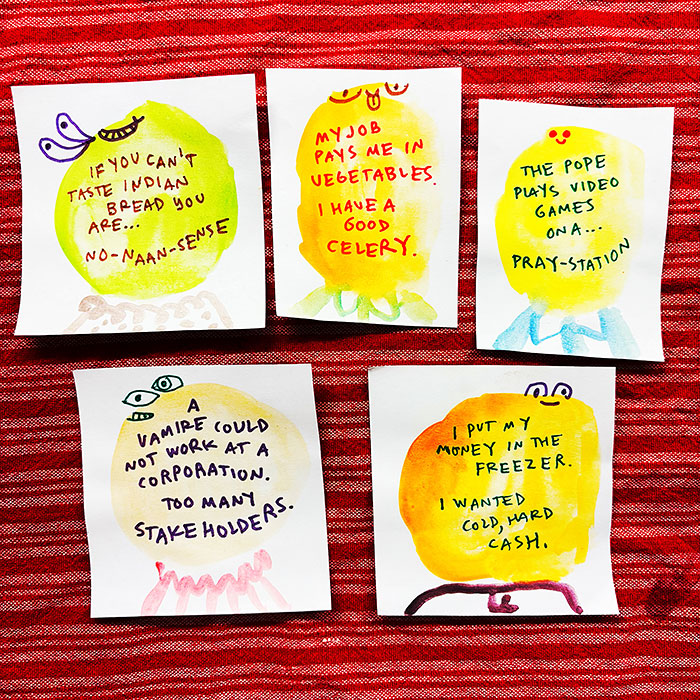 IF YOU CAN'T
TASTE INDIAN
BREAD YOU
ARE...
NO-NAAN-SENSE
MY JOB
PAYS ME IN
VEGETABLES.
I HAVE A
GOOD
CELERY.
THE POPE
PLAYS VIDEO
GAMES
ON A...
PRAY-STATION
A
VAMIRE COULD
NOT WORK AT A
CORPORATION.
TOO MANY
STAKEHOLDERS.
I PUT MY
MONEY IN THE
FREEZER.
I WANTED
COLD, HARD
CASH.